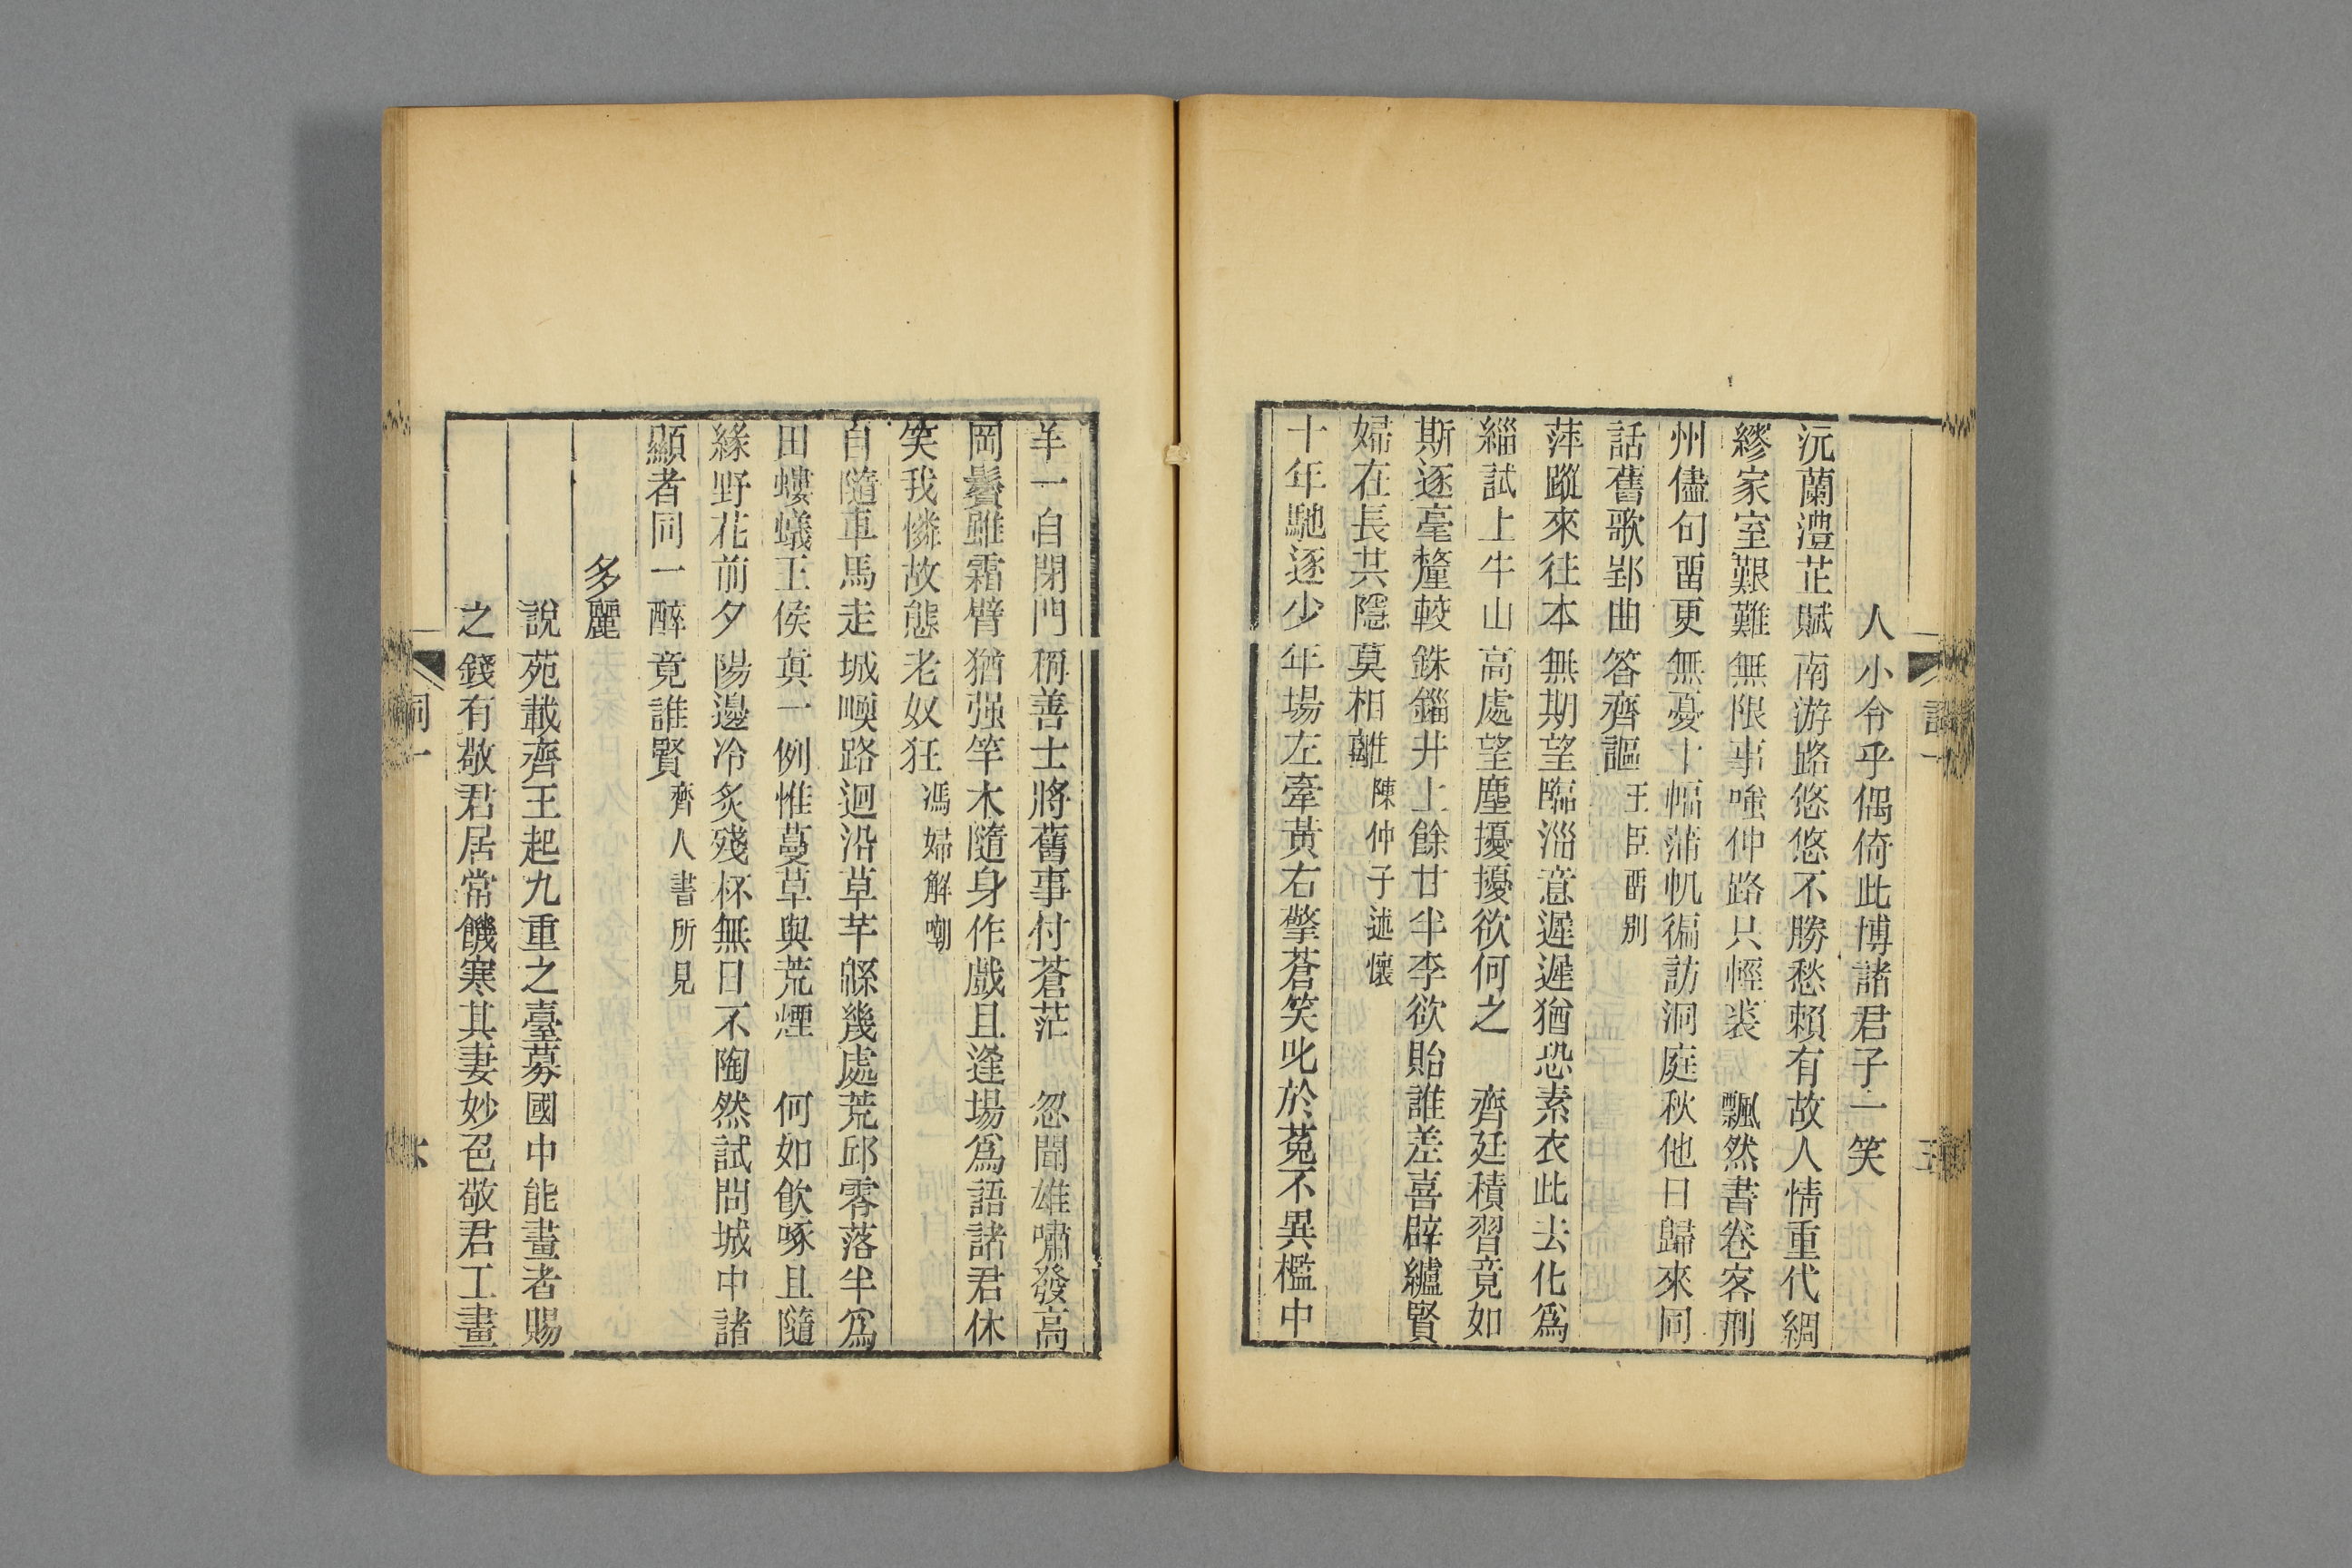 人小令乎偶倚此博諸君子一笑
沅蘭澧芷賦南游路悠悠不勝愁賴有故人情重代綢
繆家室艱難無限事嗤仲路只輕裘 飄然書卷客荆
州儘句畱更無憂十幅蒲帆徧訪洞庭秋他日歸來同
話舊歌郢曲答齊謳王臣畱别
萍蹤來往本無期望臨淄意遲遲猶恐素衣此去化爲
緇試上牛山高處望塵擾擾欲何之 齊廷積習竟如
斯逐毫釐較銖錙井上餘甘半李欲貽誰差喜辟纑賢
婦在長共隱莫相離陳仲子述懷
十年馳逐少年場左牽黃右擎蒼笑叱於菟不異檻中
羊一自閉門稱善士將舊事付蒼茫 忽聞雄嘯發高
岡鬢雖霜臂猶强竿木隨身作戲且逢場爲語諸君休
笑我憐故態老奴狂馮婦解嘲
自隨車馬走城堧路迴沿草芊緜幾處荒邱零落半爲
田螻蟻王侯眞一例惟蔓草與荒煙 何如飮啄且隨
緣野花前夕陽邊冷炙殘杯無日不陶然試問城中諸
顯者同一醉竟誰賢齊人書所見
多麗
說苑載齊王起九重之臺募國中能畫者賜
之錢有敬君居常饑寒其妻妙色敬君工畫
詞一